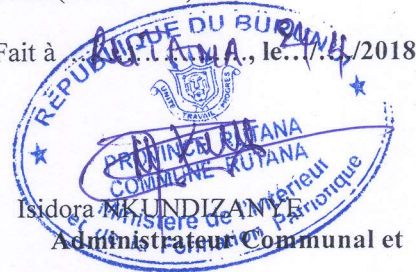 Fait à RUTANA, le 24/4/2018
RÉPUBLIQUE DU BURUNDI
UNITÉ TRAVAIL PROGRÈS
PROVINCE RUTANA
COMMUNE RUTANA
Ministère de l'Intérieur
et de la Formation Patriotique
Isidora NKUNDIZANYE
Administrateur Communal et